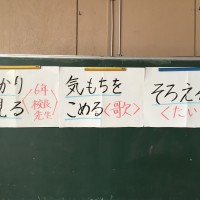 かり
見る〈6年
校長
先生〉
気もちを
こめる〈歌〉
そろえる
〈たい